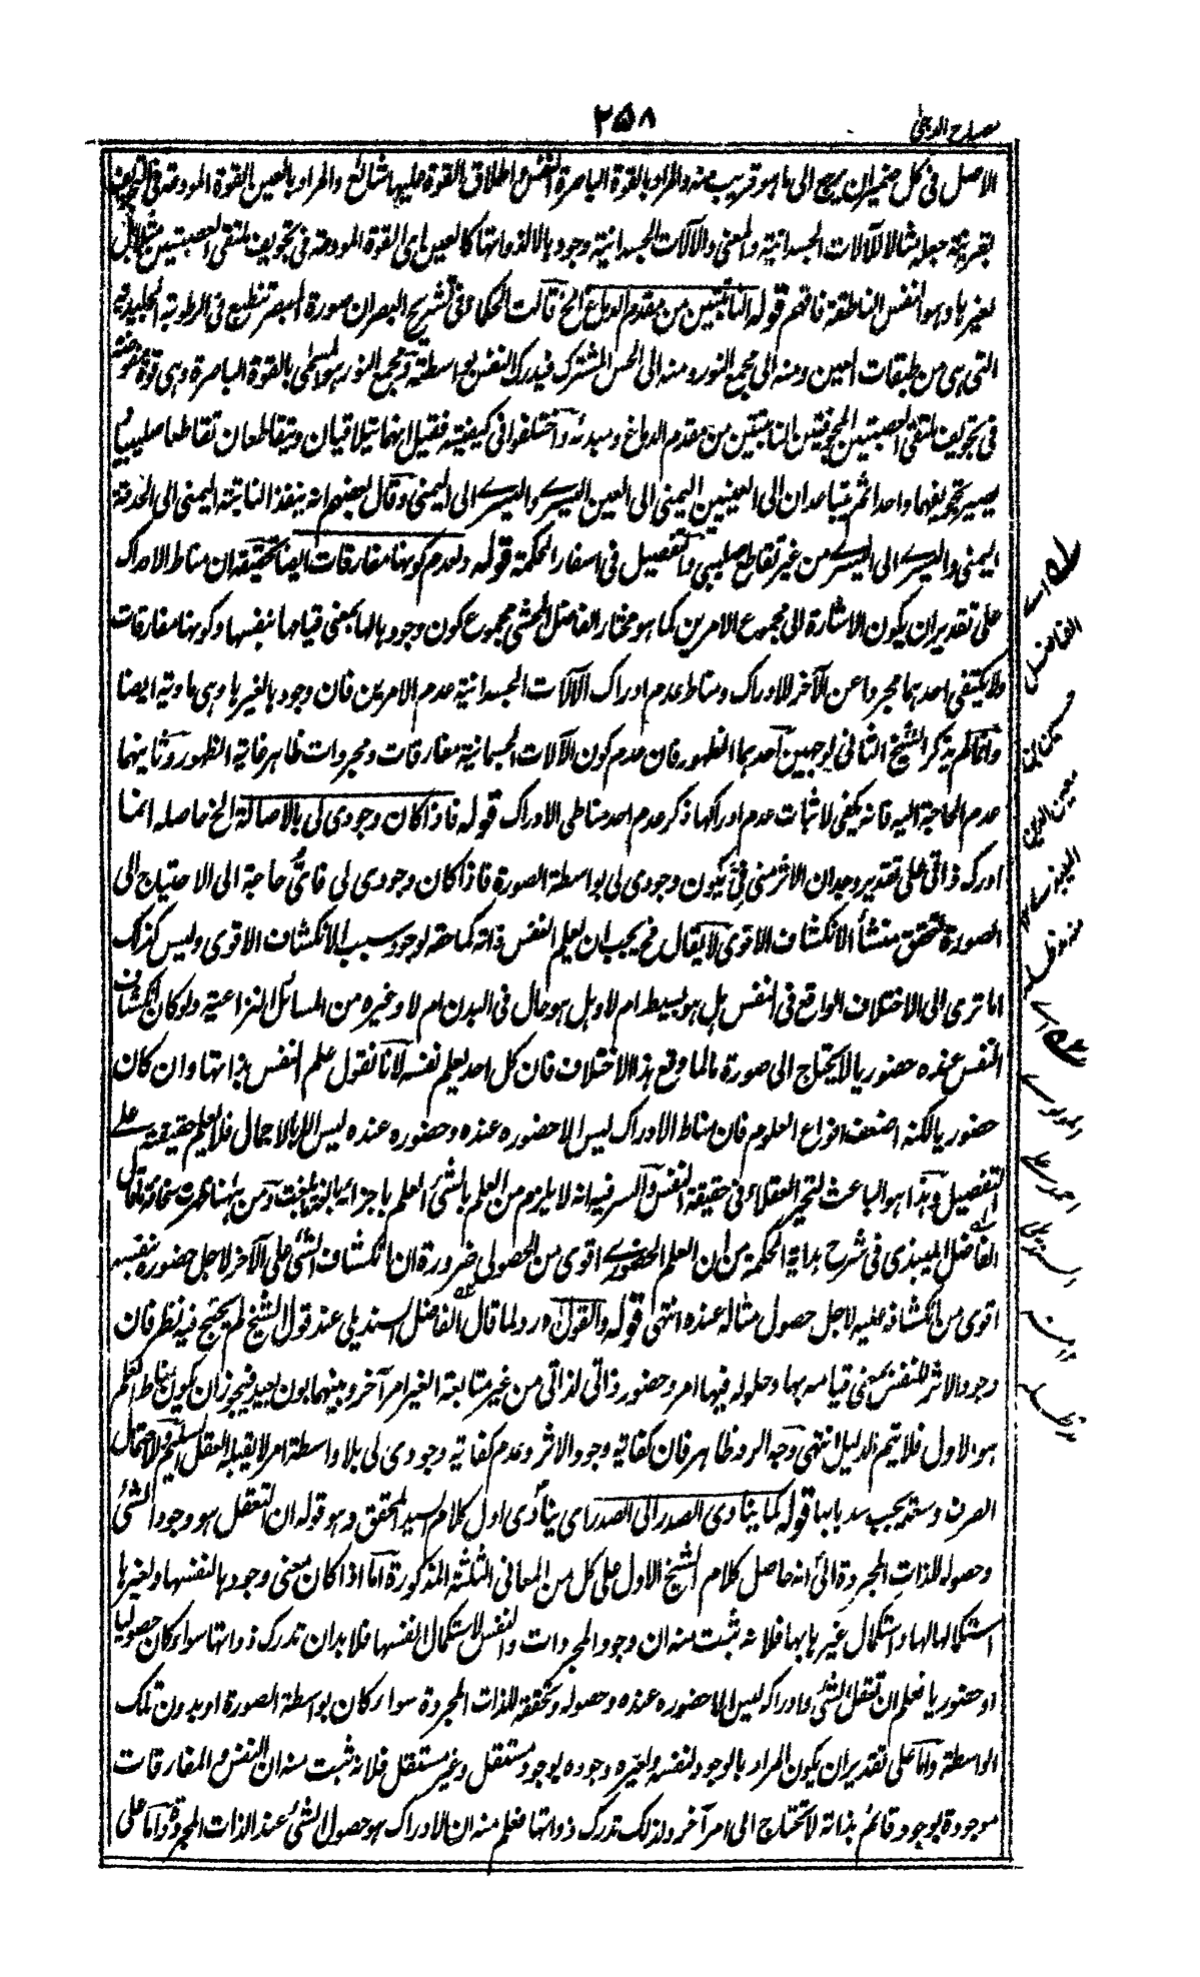 مصباح الدجى
٢٥٨
الاصل فى كل ضمير ان يرجع الى ما هو قريب منه والمراد بالقوة الباصرة النفس اطلاق القوة عليها شائع والمراد بالعين القوة المودعة فى التجويف
بقرينة جعله مثالا للآلات الجسدانية والمعنى والآلات الجسدانية وجود بالا لذواتها كالعين اى القوة المودعة فى تجويف ملتقى العصبتين مثلا بل
لغيرها وهو النفس الناطقة فافهم قوله النابتتين من مقدم الدماغ الخ قالت الحكماء فى تشريح البصر ان صورة المبصر تنطبع فى الرطوبة الجليدية
التى هى من طبقات العين ومنه الى مجمع النور ومنه الى الحس المشترك فيدرك النفس بواسطته ومجمع النور هو المسمى بالقوة الباصرة وهى قوة مودعة
فى تجويف ملتقى العصبتين المجوفتين النابتتين من مقدم الدماغ ومبدئه واختلفوا فى كيفيته فقيل انهما يتلاقيان ويتقاطعان تقاطعا صليبيا
يصير تجويفهما واحدا ثم يتباعدان الى العينين اليمنى الى العين اليسرى واليسرى الى اليمنى وقال بعضهم انه ينفذ النابتة اليمنى الى الحدقة
اليمنى واليسرى الى اليسرى من غير تقاطع صليبى والتفصيل فى اسفار الحكمة قوله ولعدم كونها مفارقات ايضا تحقيقه ان مناط الادراك
على تقدير ان يكون الاشارة الى مجموع الامرين كما هو مختار الفاضل المحشى مجموع كون وجودها لها بمعنى قيامها بنفسها وكونها مفارقات
ولا يكتفى احدهما مجردا عن الآخر للادراك ومناط عدم ادراك الآلات الجسدانية عدم الامرين فان وجودها لغيرها وهى مادية ايضا
وانما لم يذكر الشيخ الثانى لوجهين احدهما الظهور فان عدم كون الآلات الجسمانية مفارقات ومجردات ظاهر غاية الظهور وثانيهما
عدم الحاجة اليه فانه يكفى لاثبات عدم ادراكها ذكر عدم احد مناطى الادراك قوله فاذا كان وجودى لى بالاصالة الخ حاصله انما
ادرك ذاتى على تقدير وجدان الاثر منى فىّ بكون وجودى لى بواسطة الصورة فاذا كان وجودى لى فاىّ حاجة الى الاحتياج الى
الصورة لتحقق منشأ الانكشاف الاقوى لا يقال فح يجب ان يعلم النفس ذاته كما حقه لوجود سبب الانكشاف الاقوى وليس كذلك
اما ترى الى الاختلاف الواقع فى النفس هل هو بسيط ام لا وهل هو حال فى البدن ام لا وغيره من المسائل النزاعية ولو كان انكشاف
النفس عنده حضوريا لا يحتاج الى صورة ما لما وقع هذا الاختلاف فان كل احد يعلم نفسه لانا نقول علم النفس بذاتها وان كان
حضوريا لكنه اضعف انواع العلوم فان مناط الادراك ليس الا حضوره عنده وحضوره عنده ليس الا بالاجمال فلا يعلم حقيقته على
التفصيل وهذا هو الباعث لتحير العقلاء فى حقيقة النفس والسر فيه انه لا يلزم من العلم بالشئ العلم باجزائه بالغة ما بلغت ومن ههنا ظهرت سخافة ما قال
الفاضل الميبذى فى شرح هداية الحكمة من ان العلم الحضورى اقوى من الحصولى ضرورة ان انكشاف الشئ على الآخر لاجل حضوره بنفسه
اقوى من انكشافه عليه لاجل حصول مثاله عنده انتهى قوله والقول اه رد لما قال الفاضل السنديلى عند قول الشيخ لم يحتج فيه نظر فان
وجود الاثر للنفس بمعنى قيامه بها وحلوله فيها امر وحضور ذاتى لذاتى من غير متابعة الغير امر آخر وبينهما بون بعيد فيجوز ان يكون مناط العلم
هو الاول فلا يتم الدليل انتهى وجه الرد ظاهر فان كفاية وجود الاثر وعدم كفاية وجودى لى بلا واسطة امر لا يقبله العقل السليم والاحتمال
الصرف وسد يجب سد بابها قوله كما ينادى الصدر الى الصدر اى ينادى اول كلام السيد المحقق وهو قوله ان التعقل هو وجود الشئ
وحصوله للذات المجردة الى انه حاصل كلام الشيخ الاول على كل من المعانى الثلثة المذكورة اما اذا كان معنى وجودها لنفسها ولغيرها
استكمالها لها واستكمال غيرها بها فلانه ثبت منه ان وجود المجردات والنفس لاستكمال انفسها فلا بد ان تدرك ذواتها سواء كان حصوليا
او حضوريا فعلم ان تعقل الشئ وادراكه ليس الا حضوره عنده وحصوله وتحققه للذات المجردة سواء كان بواسطة الصورة او بدون تلك
الواسطة واما على تقدير ان يكون المراد بالوجود لنفسه ولغيره وجوده بوجود مستقل وغير مستقل فلانه ثبت منه ان النفس والمفارقات
موجودة بوجود قائم بذاته لا تحتاج الى امر آخر ولذلك تدرك ذواتها فعلم منه ان الادراك هو حصول الشئ عند الذات المجردة واما على
الفاضل
حسين بن
معين الدين
الميبذى